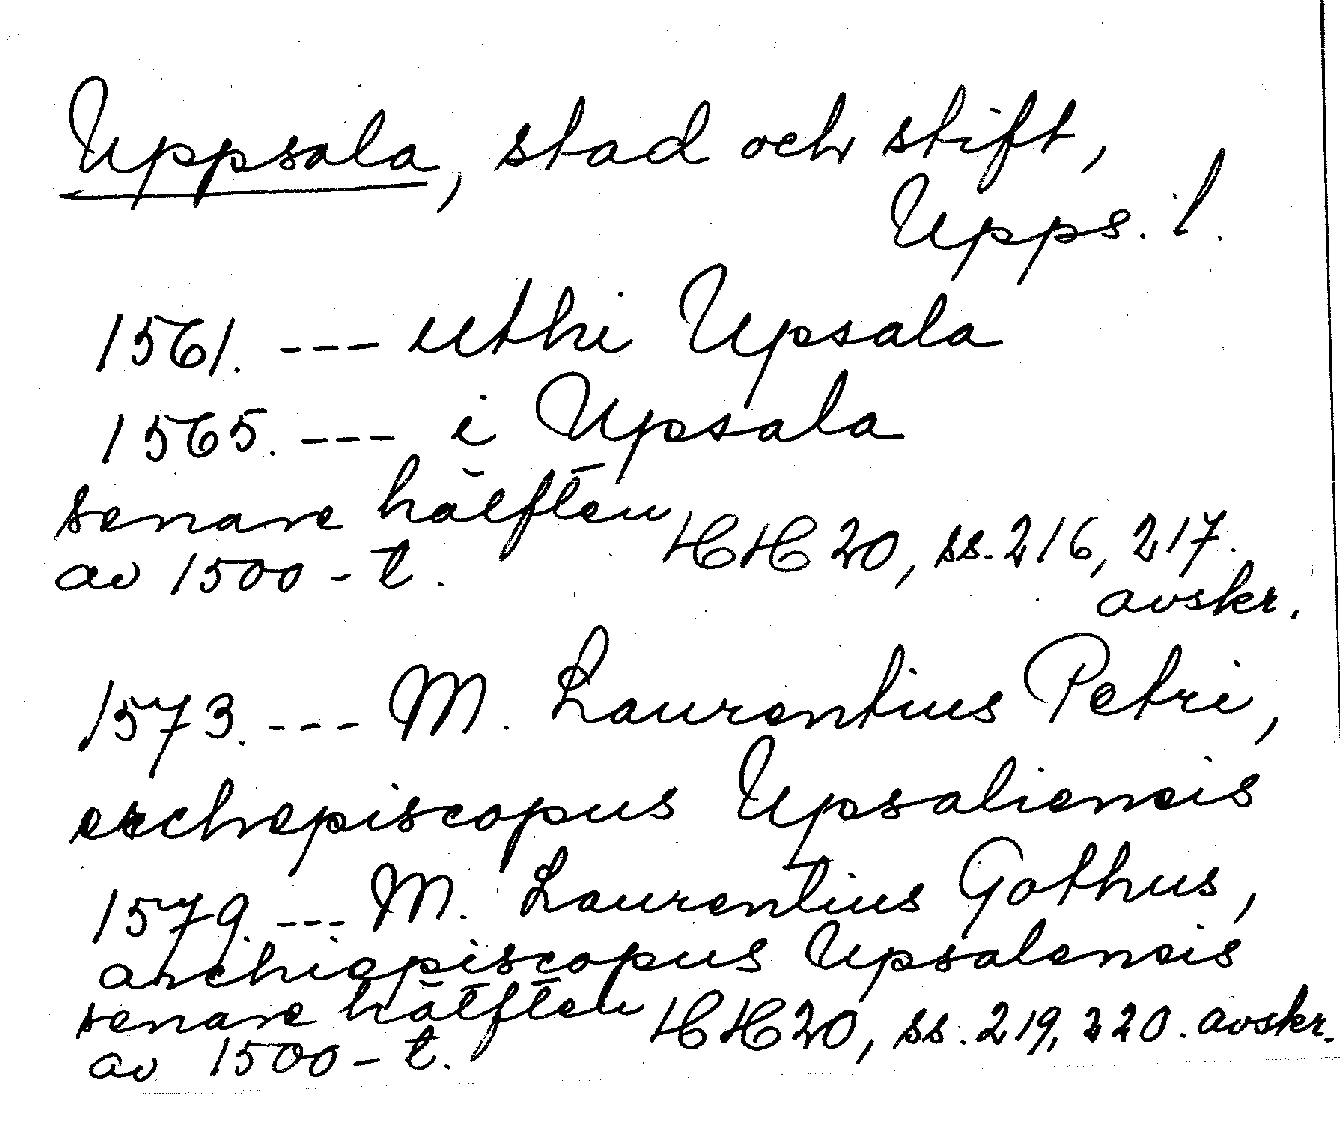 Uppsala, stad och stift,
Upps. l.
1561. --- uthi Upsala
1565. --- i Upsala
senare hälften
av 1500-t. HH 20, ss. 216, 217.
avskr.
1573. --- M. Laurentius Petri,
erchepiscopus Upsaliensis
1579. --- M. Laurentius Gothus,
archiepiscopus Upsalensis
senare hälften HH 20, ss. 219, 220. avskr.
av 1500-t.